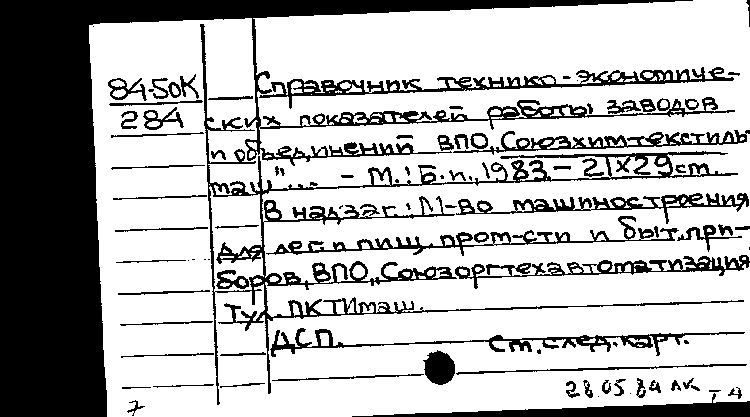 84-50К Справочник технико-экономиче-
284 ских показателей работы заводов
и объединений ВПО „Союзхимтекстиль
маш"... - М.: Б.и., 1983. - 21×29 см.
В надзаг.: М-во машиностроения
для лег. и пищ. пром-сти и быт. при-
боров, ВПО „Союзоргтехавтоматизация
Тул. ПКТИмаш.
ДСП.
См. след. карт.
28.05.84 ЛК
7